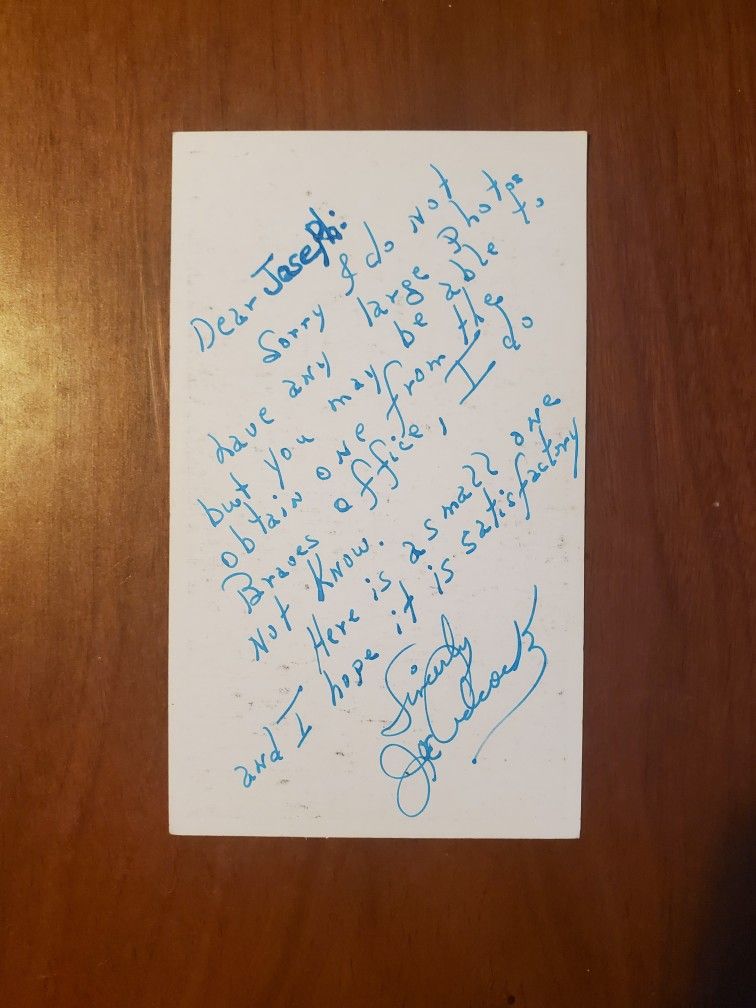 Dear Joseph:
Sorry I do not
have any large photos
but you may be able to
obtain one from the
Braves office, I do
not know.
Here is a small one
and I hope it is satisfactory
Sincerely
Joe Adcock